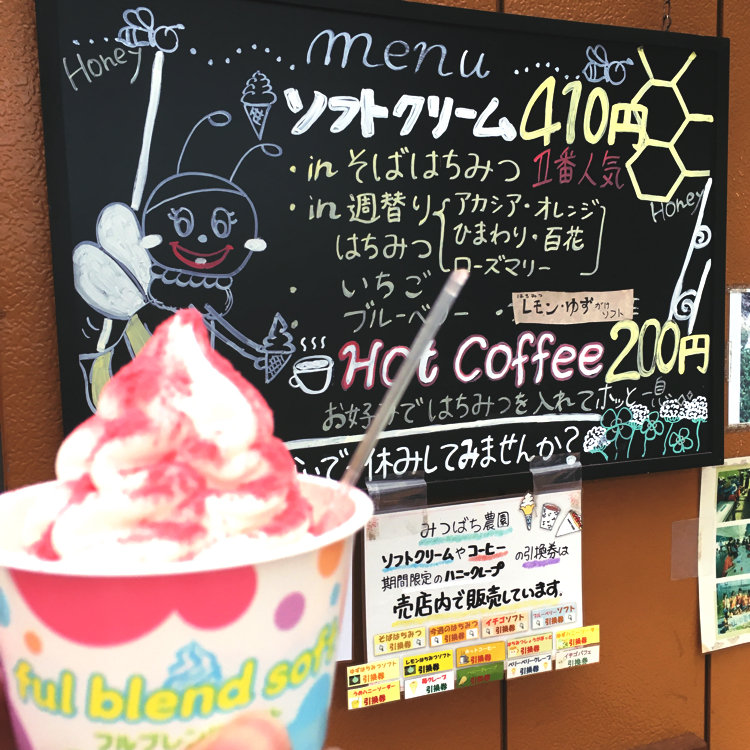 menu
Honey
ソフトクリーム 410円
・in そばはちみつ 1番人気
・in 週替り アカシア・オレンジ
はちみつ ひまわり・百花
ローズマリー
Honey
・いちご
・ブルーベリー ・レモン・ゆずがけソフト
はちみつ
Hot Coffee 200円
お好みではちみつを入れてホッと一息
いで一休みしてみませんか?
みつばち農園
ソフトクリームやコーヒーの引換券は
期間限定のハニークレープ
売店内で販売しています。
そばはちみつ 引換券
今週のはちみつ 引換券
イチゴソフト 引換券
ブルーベリーソフト 引換券
ゆずはちみつソフト 引換券
レモンはちみつソフト 引換券
ホットコーヒー 引換券
引換券
ゆずソフト 引換券
うめハニーソーダー 引換券
引換券
ベリーベリークレープ 引換券
イチゴパフェ 引換券
ful blend soft
フルブレン